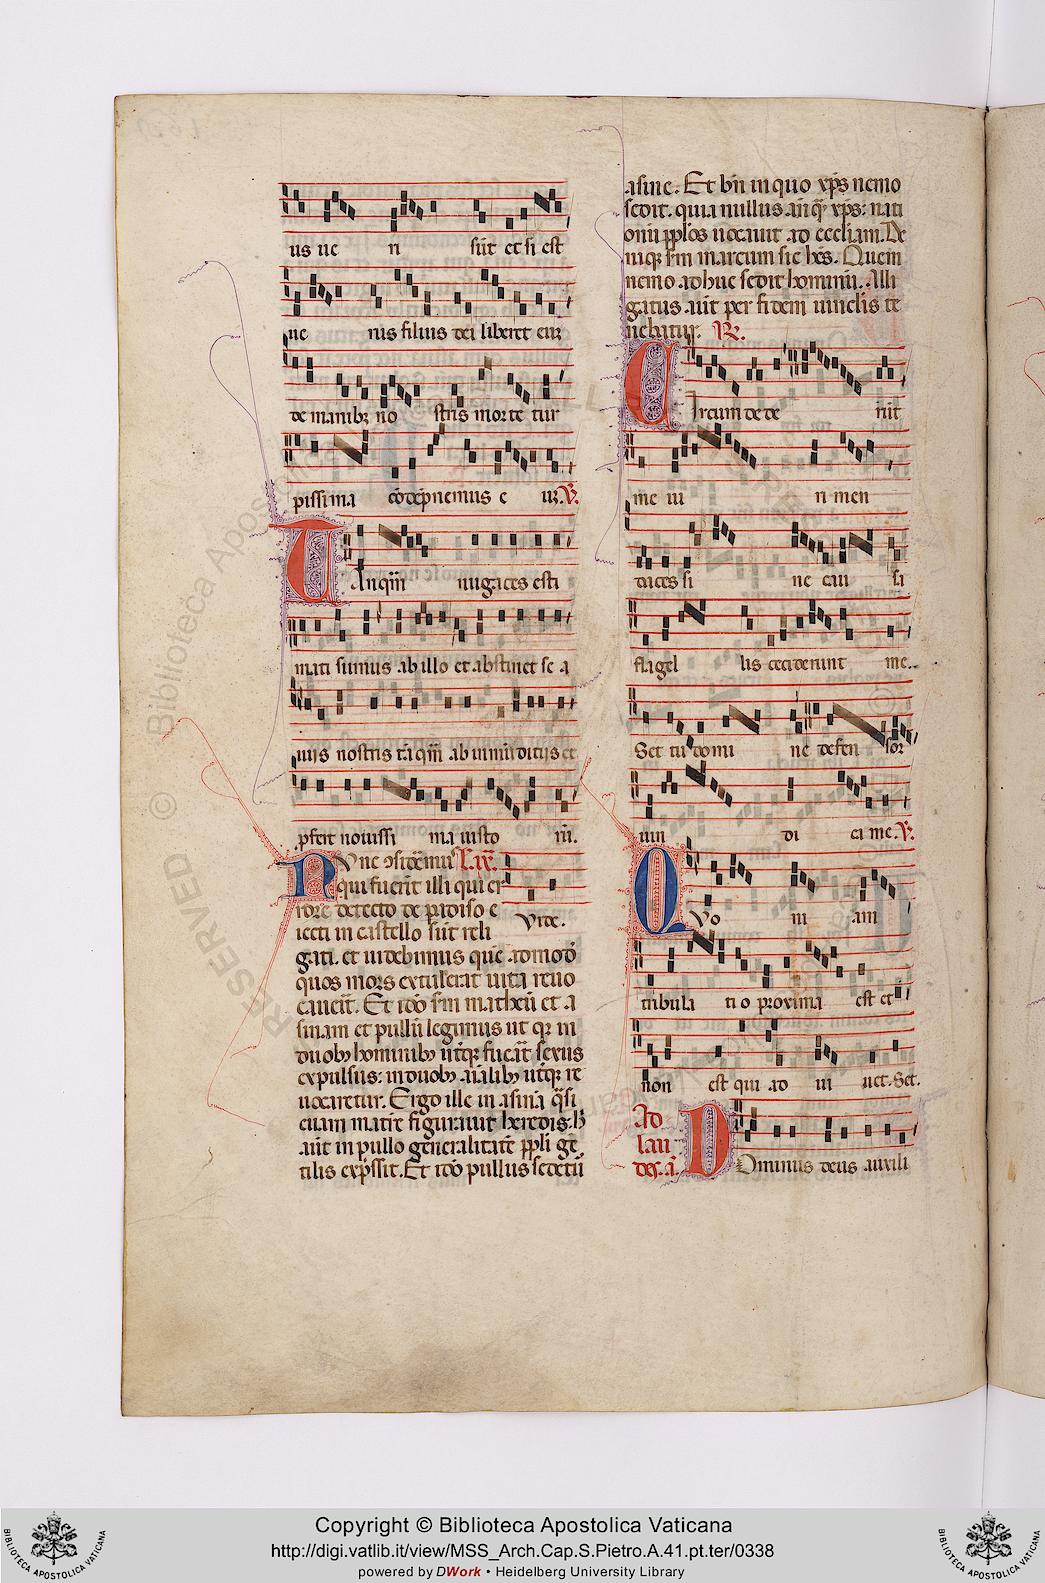 us ue n sūt et si est
ue rus filius dei liberet eum
de manibꝫ nostris morte tur
pissima cōdēpnemus eum. ℣.
Tanq̄m nugaces esti
mati sumus ab illo et abstinet se a
uiis nostris tāq̄m ab inmūditiis et
p̄fert nouissima iustorū.
Nunc ↄsid̓emus
qui fuer̄t illi qui er
rore detecto de p̄diso e
iecti in castello sūt reli
gati. et uidebimus que. admodū
quos mors expulerat uita reuo
cauerit. Et ideo s̄m matheū et a
sinam et pullū legimus ut qr in
duobꝫ hominibꝫ uterqꝫ fuerat sexus
expulsus: in duobꝫ aīalibꝫ uterqꝫ re
uocaretur. Ergo ille in asina q̄si
euam matrē figurauit heredis. h̄
aūt in pullo generalitatē pp̄li gē
tilis exp̄ssit. Et ideo pullus sedetur
Vide.
asine. Et bn̄ in quo xp̄s nemo
sedit. quia nullus an̄ q̄ xp̄s: nati
onū pp̄los uocauit ad eccl̄iam. De
niqꝫ s̄m marcum sic hēs. Quem
nemo adhuc sedit hominū. Alli
gatus aūt per fidem uinclis te
nebatur. ℟.
Circumdede rūt
me ui ri men
daces si ne cau sa
flagel lis ceciderunt me.
Set tu domi ne defen sor
uin di ca me. ℣.
Quo ni am
tribula tio proxima est et
non est qui ad iu uet. Set.
Ad
lau
des. a̅.
Dominus deus auxili
RESERVED © Biblioteca Apostolica Vaticana
Copyright © Biblioteca Apostolica Vaticana
http://digi.vatlib.it/view/MSS_Arch.Cap.S.Pietro.A.41.pt.ter/0338
powered by DWork • Heidelberg University Library
BIBLIOTECA APOSTOLICA VATICANA
BIBLIOTECA APOSTOLICA VATICANA